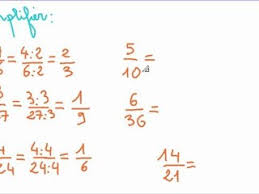 mplifier:
= 4:2/6:2 = 2/3
5/10 =
7 = 3:3/27:3 = 1/9
6/36 =
4/24 = 4:4/24:4 = 1/6
14/21 =